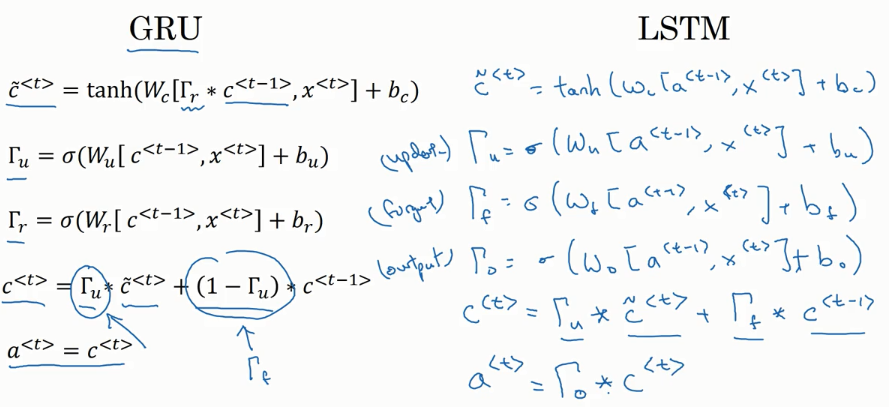 GRU
c̃^{<t>} = tanh(W_c[Γ_r * c^{<t−1>}, x^{<t>}] + b_c)
Γ_u = σ(W_u[ c^{<t−1>}, x^{<t>}] + b_u)
Γ_r = σ(W_r[ c^{<t−1>}, x^{<t>}] + b_r)
c^{<t>} = Γ_u * c̃^{<t>} + (1 − Γ_u) * c^{<t−1>}
a^{<t>} = c^{<t>}
Γ_f
LSTM
c̃^{<t>} = tanh(W_c[a^{<t-1>}, x^{<t>}] + b_c)
(update) Γ_u = σ(W_u[a^{<t-1>}, x^{<t>}] + b_u)
(forget) Γ_f = σ(W_f[a^{<t-1>}, x^{<t>}] + b_f)
(output) Γ_o = σ(W_o[a^{<t-1>}, x^{<t>}] + b_o)
c^{<t>} = Γ_u * c̃^{<t>} + Γ_f * c^{<t-1>}
a^{<t>} = Γ_o * c^{<t>}